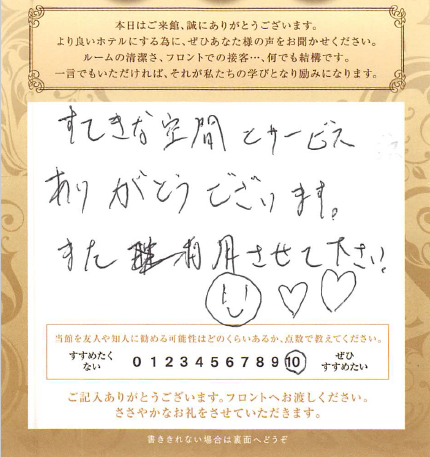 本日はご来館、誠にありがとうございます。
より良いホテルにする為に、ぜひあなた様の声をお聞かせください。
ルームの清潔さ、フロントでの接客…、何でも結構です。
一言でもいただければ、それが私たちの学びとなり励みになります。
すてきな空間とサービス
ありがとうございます。
また利用させて下さい!
当館を友人や知人に勧める可能性はどのくらいあるか、点数で教えてください。
すすめたくない 0 1 2 3 4 5 6 7 8 9 10 ぜひすすめたい
ご記入ありがとうございます。フロントへお渡しください。
ささやかなお礼をさせていただきます。
書ききれない場合は裏面へどうぞ